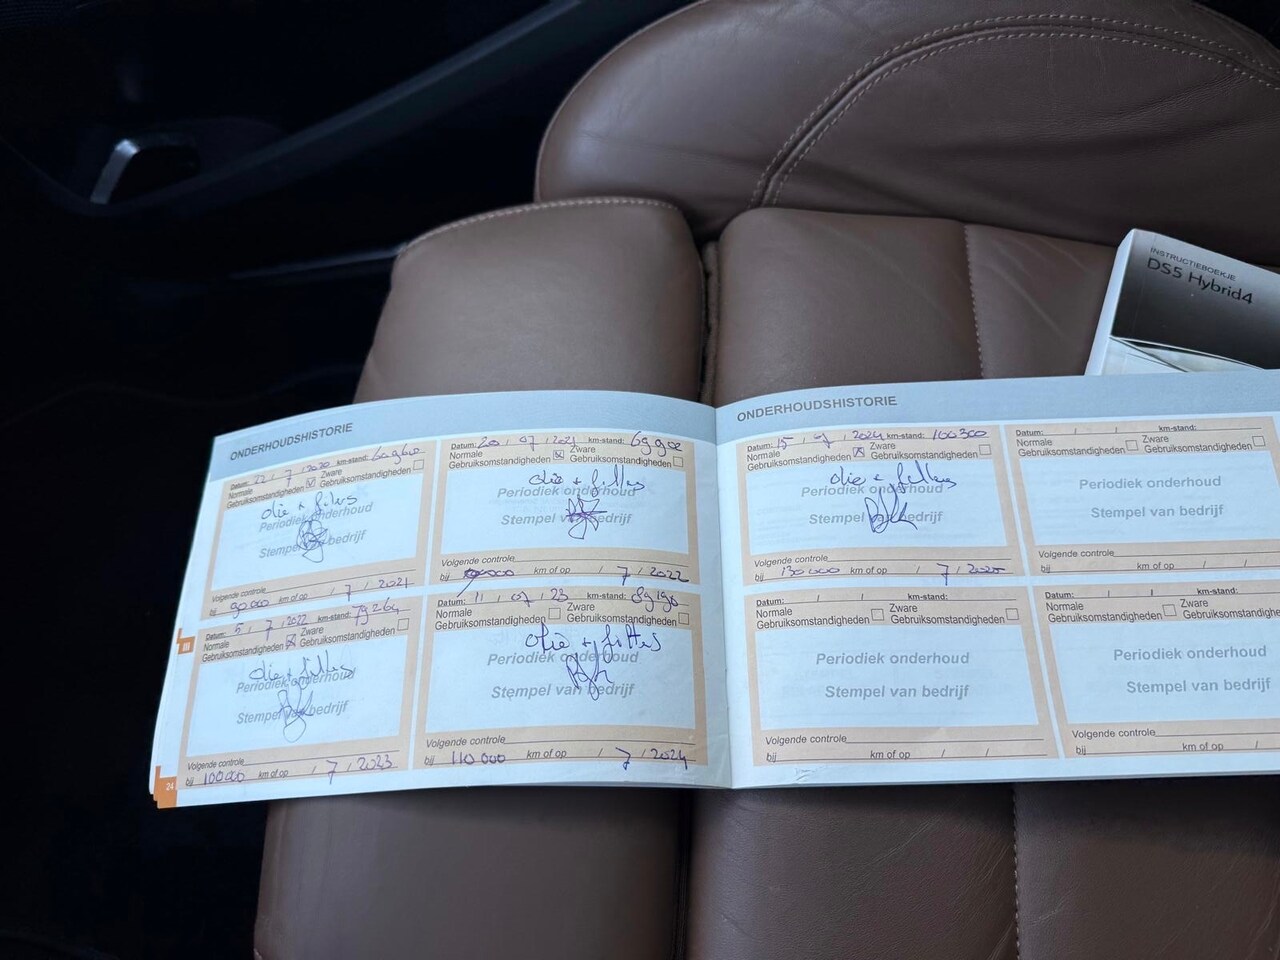 INSTRUCTIEBOEKJE
DS5 Hybrid4
ONDERHOUDSHISTORIE
Datum: 22 / 7 / 2020 km-stand:
Normale Zware
Gebruiksomstandigheden Gebruiksomstandigheden
olie + filters
Periodiek onderhoud
Stempel van bedrijf
Volgende controle
bij 90.000 km of op / 7 / 2021
Datum: 20 / 07 / 2021 km-stand: 69902
Normale Zware
Gebruiksomstandigheden Gebruiksomstandigheden
olie + filters
Periodiek onderhoud
Stempel van bedrijf
Volgende controle
bij km of op / 7 / 2022
Datum: 5 / 7 / 2022 km-stand: 79264
Normale Zware
Gebruiksomstandigheden Gebruiksomstandigheden
olie + filters
Periodiek onderhoud
Stempel van bedrijf
Volgende controle
bij 100000 km of op / 7 / 2023
Datum: 11 / 07 / 23 km-stand: 89190
Normale Zware
Gebruiksomstandigheden Gebruiksomstandigheden
olie + filters
Periodiek onderhoud
Stempel van bedrijf
Volgende controle
bij 110 000 km of op / 7 / 2024
24
III
ONDERHOUDSHISTORIE
Datum: 15 / 7 / 2024 km-stand: 100300
Normale Zware
Gebruiksomstandigheden Gebruiksomstandigheden
olie + filters
Periodiek onderhoud
Stempel van bedrijf
Volgende controle
bij 130000 km of op / 7 / 2025
Datum: / / km-stand:
Normale Zware
Gebruiksomstandigheden Gebruiksomstandigheden
Periodiek onderhoud
Stempel van bedrijf
Volgende controle
bij km of op / /
Datum: / / km-stand:
Normale Zware
Gebruiksomstandigheden Gebruiksomstandigheden
Periodiek onderhoud
Stempel van bedrijf
Volgende controle
bij km of op / /
Datum: / / km-stand:
Normale Zware
Gebruiksomstandigheden
Periodiek onderhoud
Stempel van bedrijf
Volgende controle
bij km of op /